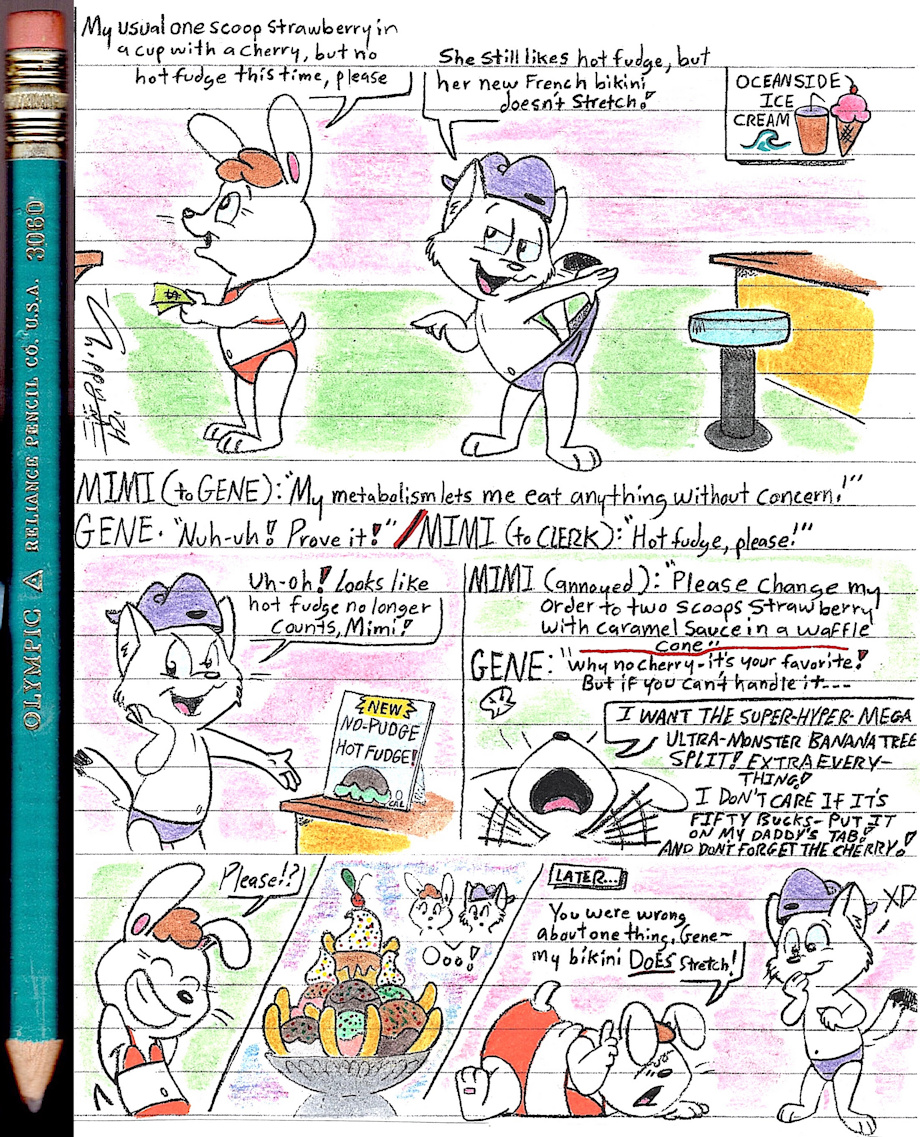 My usual one scoop strawberry in
a cup with a cherry, but no
hot fudge this time, please
She still likes hot fudge, but
her new French bikini
doesn't stretch!
OCEANSIDE
ICE
CREAM
OLYMPIC RELIANCE PENCIL CO. U.S.A. 3060
'24
MIMI (to GENE): "My metabolism lets me eat anything without concern!"
GENE. "Nuh-uh! Prove it!" / MIMI (to CLERK): "Hot fudge, please!"
Uh-oh! Looks like
hot fudge no longer
counts, Mimi!
NEW
NO-PUDGE
HOT FUDGE!
0
CAL
MIMI (annoyed): "Please change my
order to two scoops strawberry
with caramel sauce in a waffle
cone."
GENE: "Why no cherry-it's your favorite!
But if you can't handle it---
I WANT THE SUPER-HYPER-MEGA
ULTRA-MONSTER BANANA TREE
SPLIT! EXTRA EVERY-
THING!
I DON'T CARE IF IT'S
FIFTY BUCKS- PUT IT
ON MY DADDY'S TAB!
AND DON'T FORGET THE CHERRY!
Please!?
Ooo!
LATER...
You were wrong
about one thing, Gene-
my bikini DOES stretch!
XD